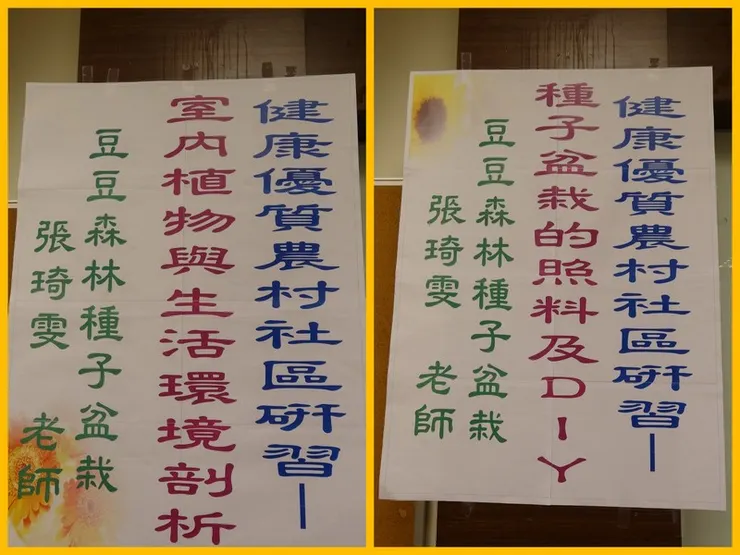 健康優質農村社區研習—
室內植物與生活環境剖析
豆豆森林種子盆栽
張琦雯 老師
健康優質農村社區研習—
種子盆栽的照料及DIY
豆豆森林種子盆栽
張琦雯 老師